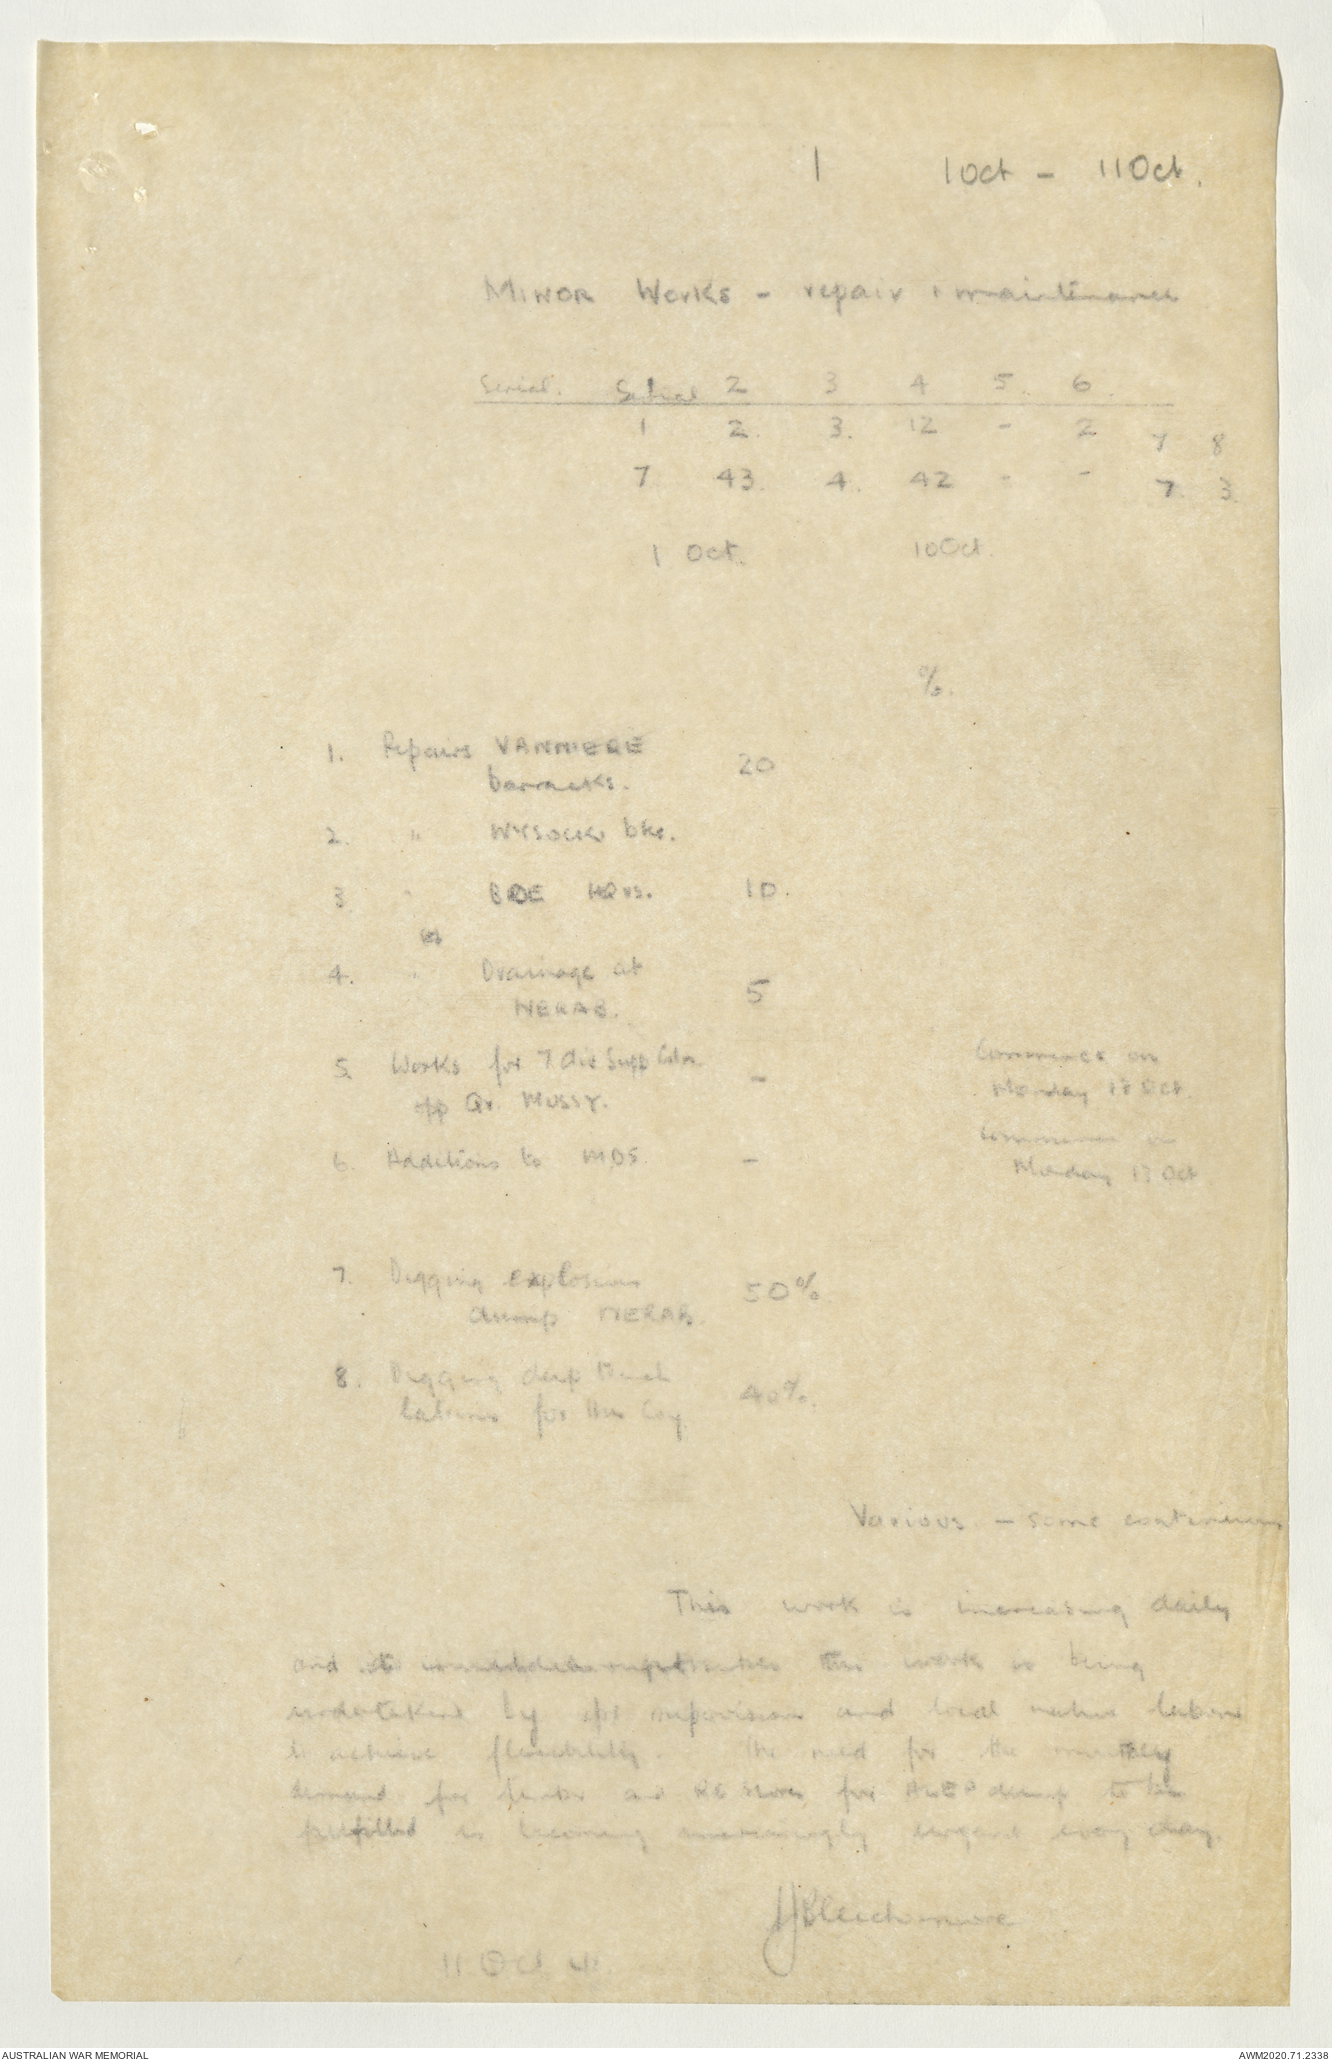 1 1 Oct - 11 Oct.
MINOR Works - repair & maintenance
Serial. 1 2 3 4 5. 6.
1 2. 3. 12 - 2 7 8
7 43. 4. 42 - - 7. 3.
1 Oct. 10 Oct.
%.
1. Repairs VANNIERE
barracks. 20
2. " WYSOCKI bks.
3 " BDE HQrs. 10.
4. " Drainage at
NERAB. 5
5. Works for 7 div Supp Coln. - Commence on
opp Qr. MUSSY. Monday Oct.
6. Additions to MDS. - Commence on
Monday Oct
7. Digging explosives 50%.
dump NERAB.
8. Digging deep trench 40%.
latrines for this Coy.
Various - some continuous
This work is increasing daily
and this work is being
undertaken by spr supervision and local native labour
to achieve flexibility. The need for the monthly
demand for timber and RE Stores for dump to be
fulfilled is becoming increasingly urgent every day.
Bleechmore
11 Oct 41.
AUSTRALIAN WAR MEMORIAL AWM2020.71.2338